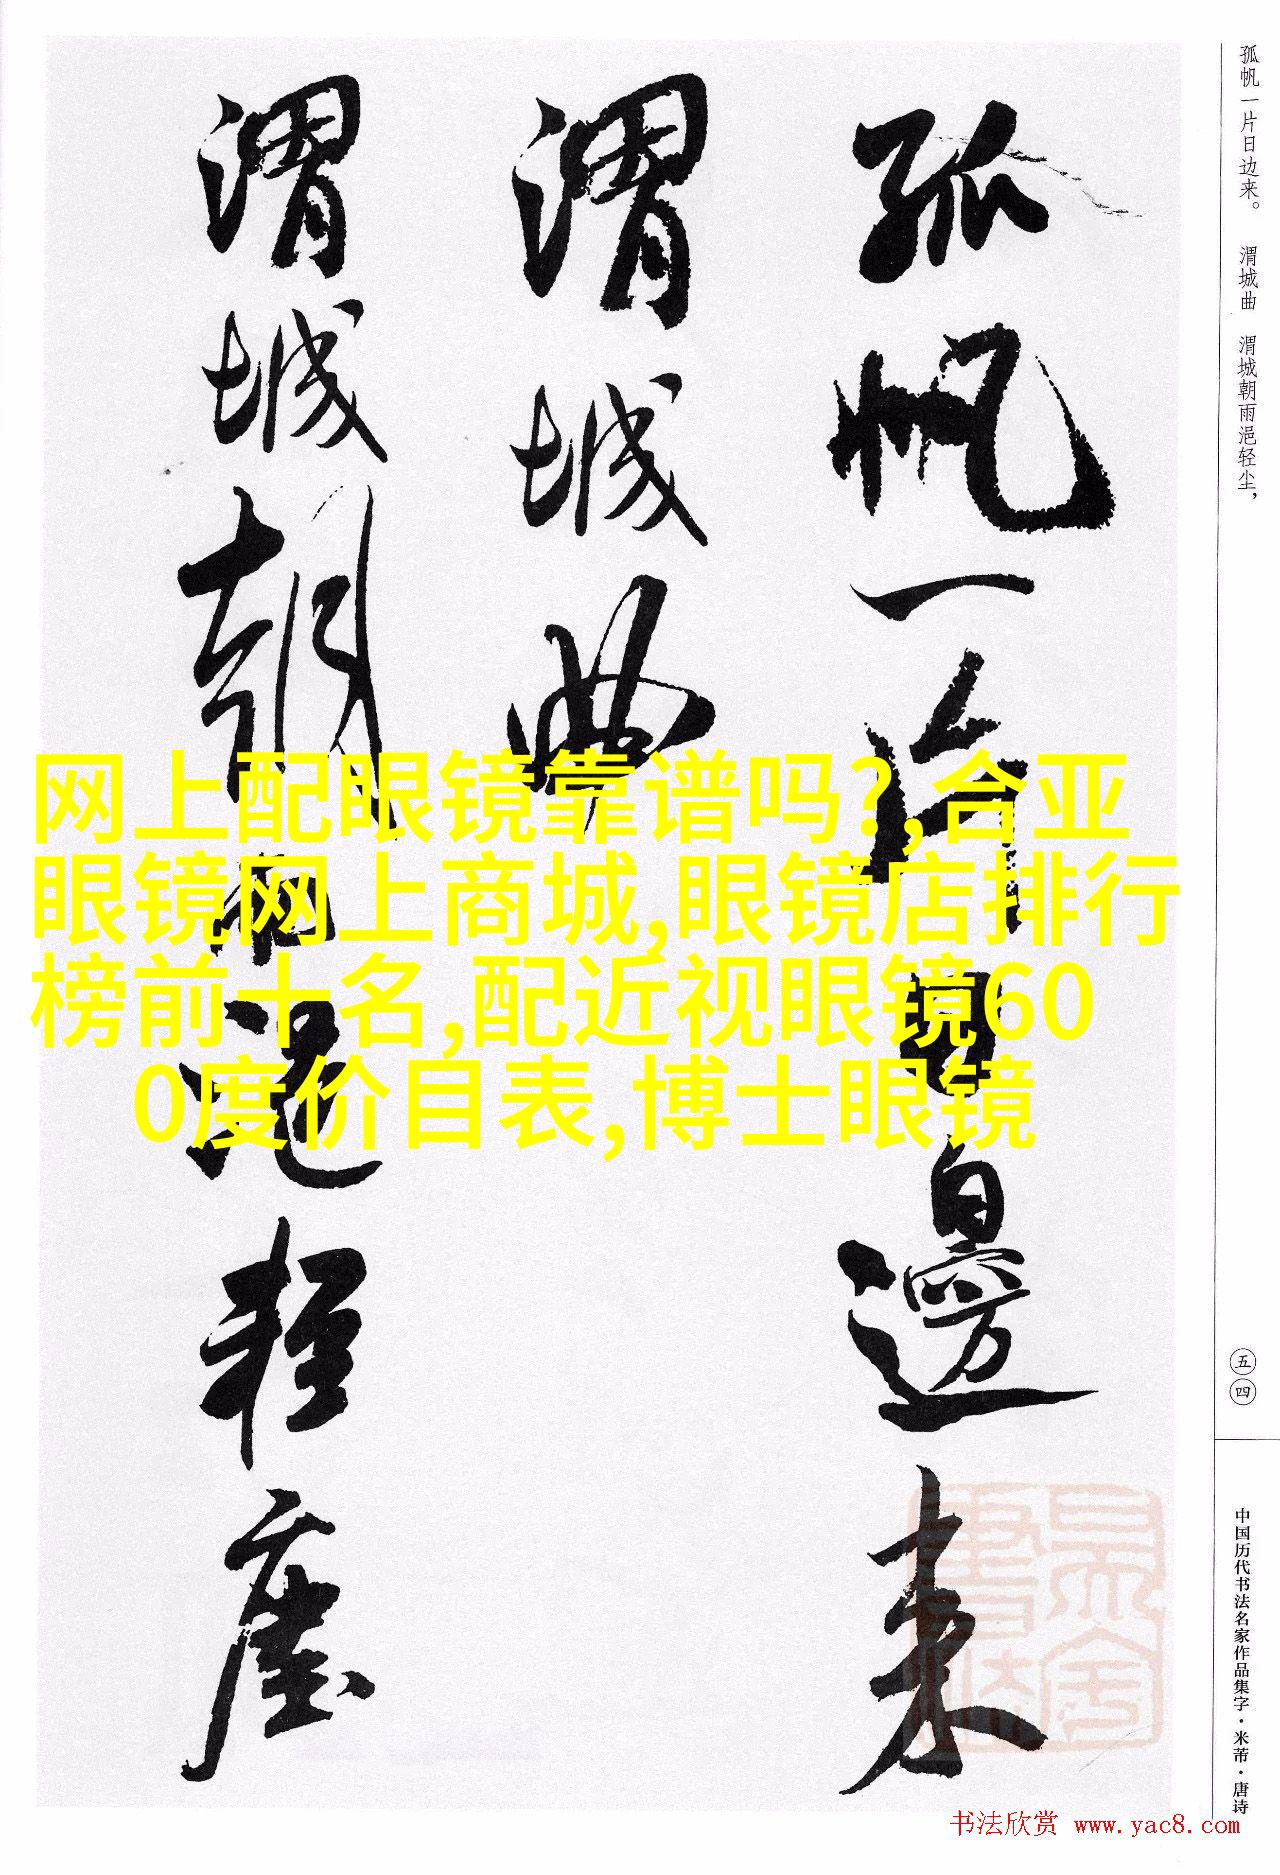 孤帆一片日边来。 渭城曲 渭城朝雨浥轻尘,
孤帆一片日邊来
渭城曲
渭城朝雨浥轻塵
网上配眼镜靠谱吗?,合亚
眼镜网上商城,眼镜店排行
榜前十名,配近视眼镜60
0度价目表,博士眼镜
五四
中国历代书法名家作品集字·米芾·唐诗
书法欣赏 www.yac8.com